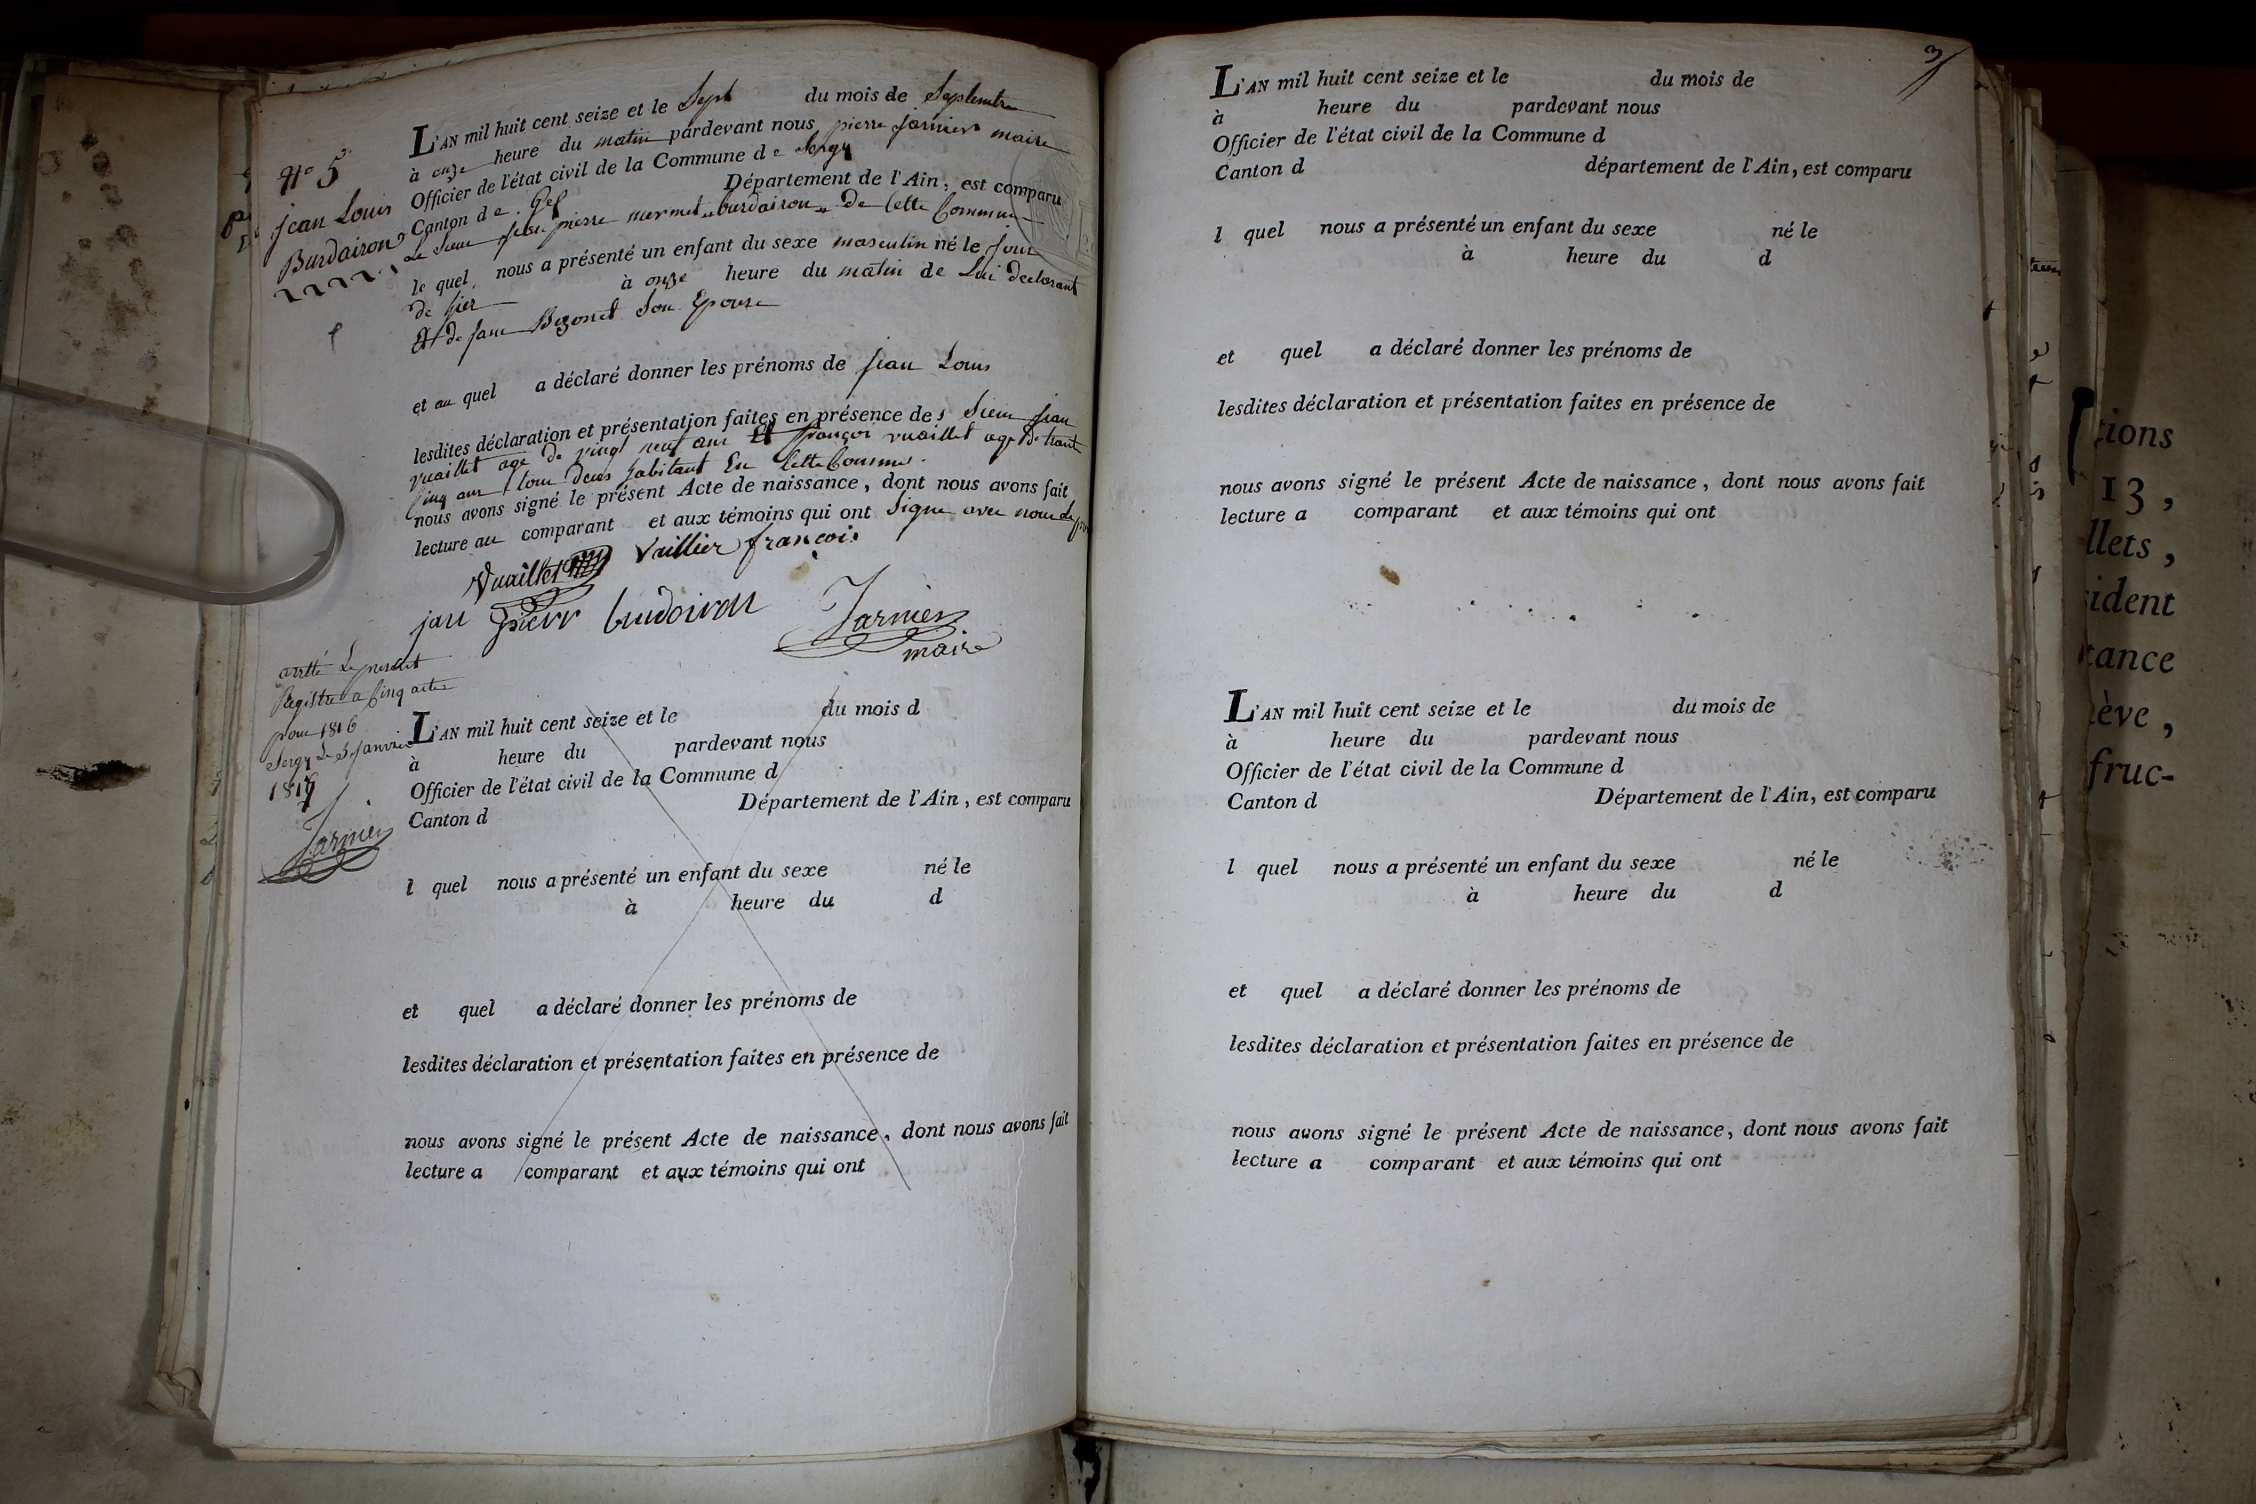 N.o 5
jean Louis
Burdairon
L'AN mil huit cent seize et le Sept du mois de Septembre
à onze heure du matin pardevant nous pierre Jarnier maire
Officier de l'état civil de la Commune de Sergy
Canton de Gex Département de l'Ain, est comparu
Le Sieur jean pierre mermet burdairon de Cette Commune
le quel nous a présenté un enfant du sexe masculin né le jour
de hier à onze heure du matin de Lui declarant
Et de jane Bizonet Son Epouse
et au quel a déclaré donner les prénoms de jean Louis
lesdites déclaration et présentation faites en présence des Sieur jean
vuaillet agé de vingt neuf ans Et françois vuaillet agé de trante
Cinq ans tous deux habitant En Cette Commune.
nous avons signé le présent Acte de naissance, dont nous avons fait
lecture au comparant et aux témoins qui ont Signé avec nous
Vuaillet Vaillier françois
jan pierr burdoiron Jarnier
maire
arrêté Le present
Registre a Cinq actes
pour 1816
Sergy Le 3 Janvier
1817
Jarnier
L'AN mil huit cent seize et le du mois d
à heure du pardevant nous
Officier de l'état civil de la Commune d
Canton d Département de l'Ain, est comparu
l quel nous a présenté un enfant du sexe né le
à heure du d
et quel a déclaré donner les prénoms de
lesdites déclaration et présentation faites en présence de
nous avons signé le présent Acte de naissance, dont nous avons fait
lecture a comparant et aux témoins qui ont
3
L'AN mil huit cent seize et le du mois de
à heure du pardevant nous
Officier de l'état civil de la Commune d
Canton d département de l'Ain, est comparu
l quel nous a présenté un enfant du sexe né le
à heure du d
et quel a déclaré donner les prénoms de
lesdites déclaration et présentation faites en présence de
nous avons signé le présent Acte de naissance, dont nous avons fait
lecture a comparant et aux témoins qui ont
L'AN mil huit cent seize et le du mois de
à heure du pardevant nous
Officier de l'état civil de la Commune d
Canton d Département de l'Ain, est comparu
l quel nous a présenté un enfant du sexe né le
à heure du d
et quel a déclaré donner les prénoms de
lesdites déclaration et présentation faites en présence de
nous avons signé le présent Acte de naissance, dont nous avons fait
lecture a comparant et aux témoins qui ont
tions
13,
llets,
sident
tance
ève,
fruc-